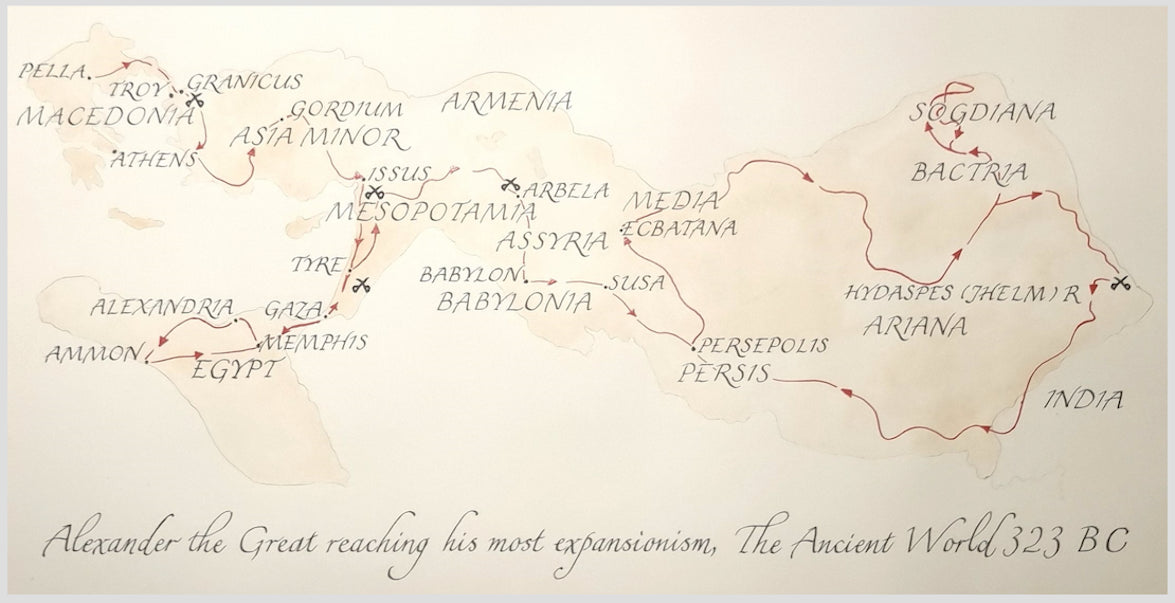 PELLA
TROY
GRANICUS
MACEDONIA
GORDIUM
ASIA MINOR
ARMENIA
ATHENS
ISSUS
MESOPOTAMIA
ARBELA
ASSYRIA
MEDIA
ECBATANA
SOGDIANA
BACTRIA
TYRE
BABYLON
BABYLONIA
SUSA
ALEXANDRIA
GAZA
HYDASPES (JHELM) R
ARIANA
AMMON
MEMPHIS
EGYPT
PERSEPOLIS
PERSIS
INDIA
Alexander the Great reaching his most expansionism, The Ancient World 323 BC